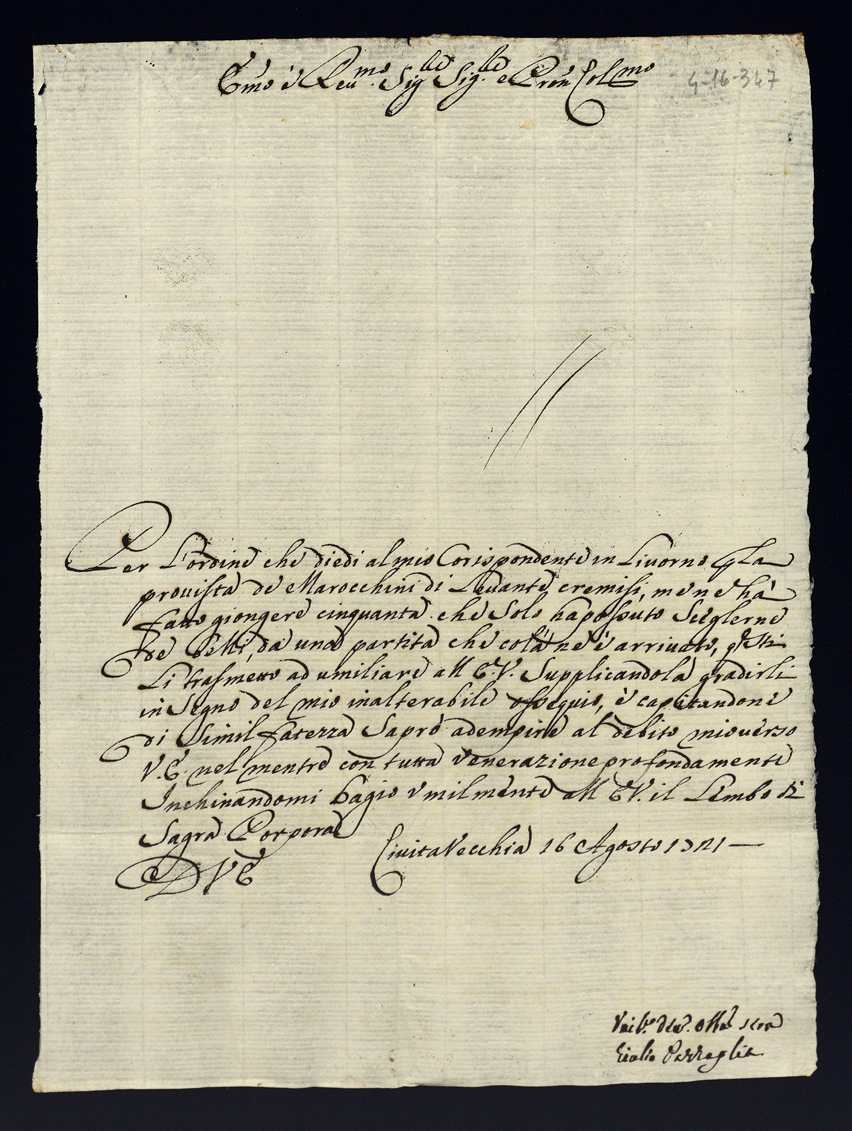 Emo è Reumo. Siglle Sig.lle e Pren Colmo
4-16-347
Per L'ordine che diedi al mio Corispondente in Livorno p la
provista de Marocchini di Levante cremisi, me ne hà
fatto giongere cinquanta che Solo ha possuto Sceglerne
de belli, da una partita che colà ne è arrivato, questi
Li trasmetto ad umiliare all E.V. Supplicandola gradirli
in Segno del mio inalterabile ossequio, è capitandone
di Simil fatezza Saprò adempire al debito mio verso
V.E. nel mentre con tutta venerazione profondamente
Inchinandomi bagio Vmilmente all EV. il Lembo di
Sagra Porpora
CivitaVecchia 16 Agosto
D V E
Giulio